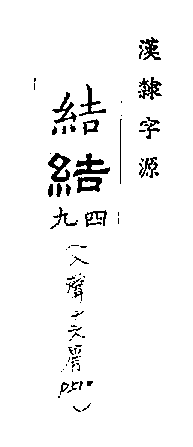 漢隸字源
結
結
四九
(入聲十六屑 P.51)